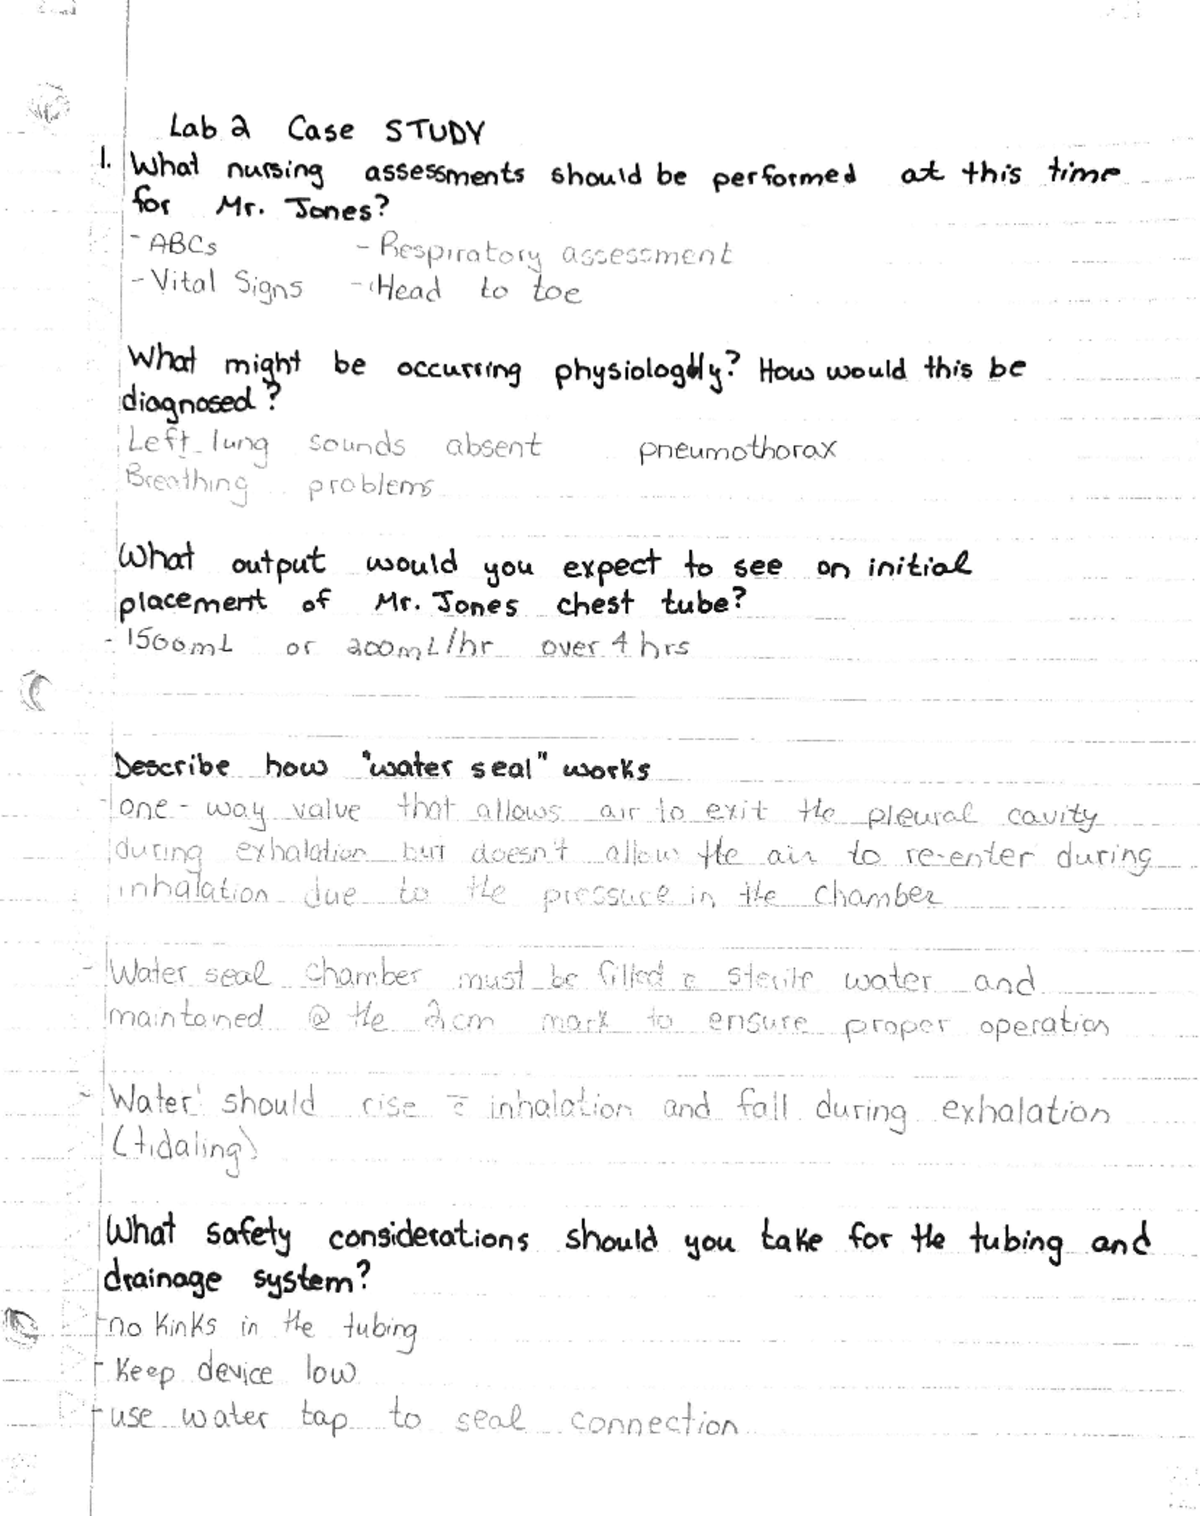 Lab 2 Case STUDY
1. What nursing assessments should be performed at this time
for Mr. Jones?
- ABCs - Respiratory assessment
- Vital Signs - Head to toe
What might be occurring physiologdly? How would this be
diagnosed?
Left lung sounds absent pneumothorax
Breathing problems
What output would you expect to see on initial
placement of Mr. Jones chest tube?
- 1500mL or 200mL/hr over 4 hrs
Describe how "water seal" works
- one-way value that allows air to exit the pleural cavity
during exhalation but doesn't allow the air to re-enter during
inhalation due to the pressure in the chamber
- Water seal chamber must be filled c̄ sterile water and
maintained @ the 2cm mark to ensure proper operation
- Water should rise c̄ inhalation and fall during exhalation
(tidaling)
What safety considerations should you take for the tubing and
drainage system?
- no kinks in the tubing
- Keep device low
- use water tap to seal connection